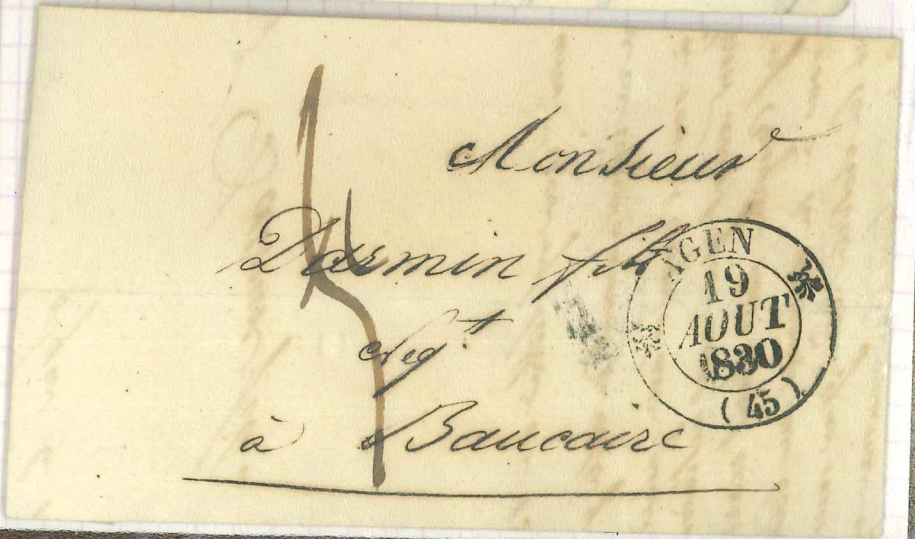 Monsieur
Darmin fils
Negt
à Baucaire
AGEN
19
AOUT
1830
(45)